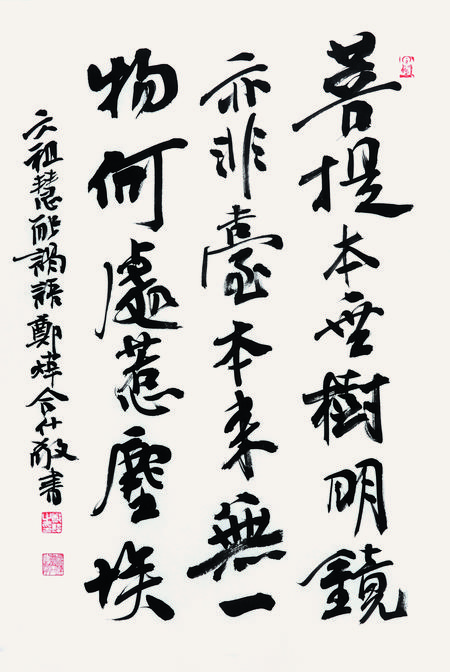 菩提本無樹明鏡
亦非臺本来無一
物何處惹塵埃
六祖慧能謁語鄭燁合什敬書